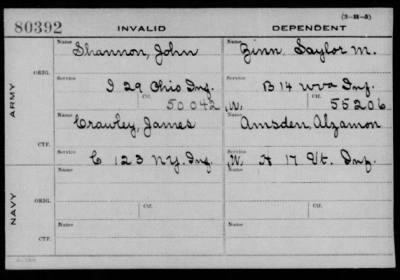 80392 INVALID DEPENDENT (3-H-5)
ARMY
ORIG.
Name Shannon, John Name Zinn Saylor M.
Service I 29 Ohio Inf. Service B 14 Wva Inf.
Ctf. 50.042 W. Ctf. 55206
CTF.
Name Crawley, James Name Amsden, Alzamon
Service C 123 N.Y. Inf. Service W. A 17 Vt. Inf.
NAVY
ORIG.
Name Name
Ctf. Ctf.
CTF.
Name Name